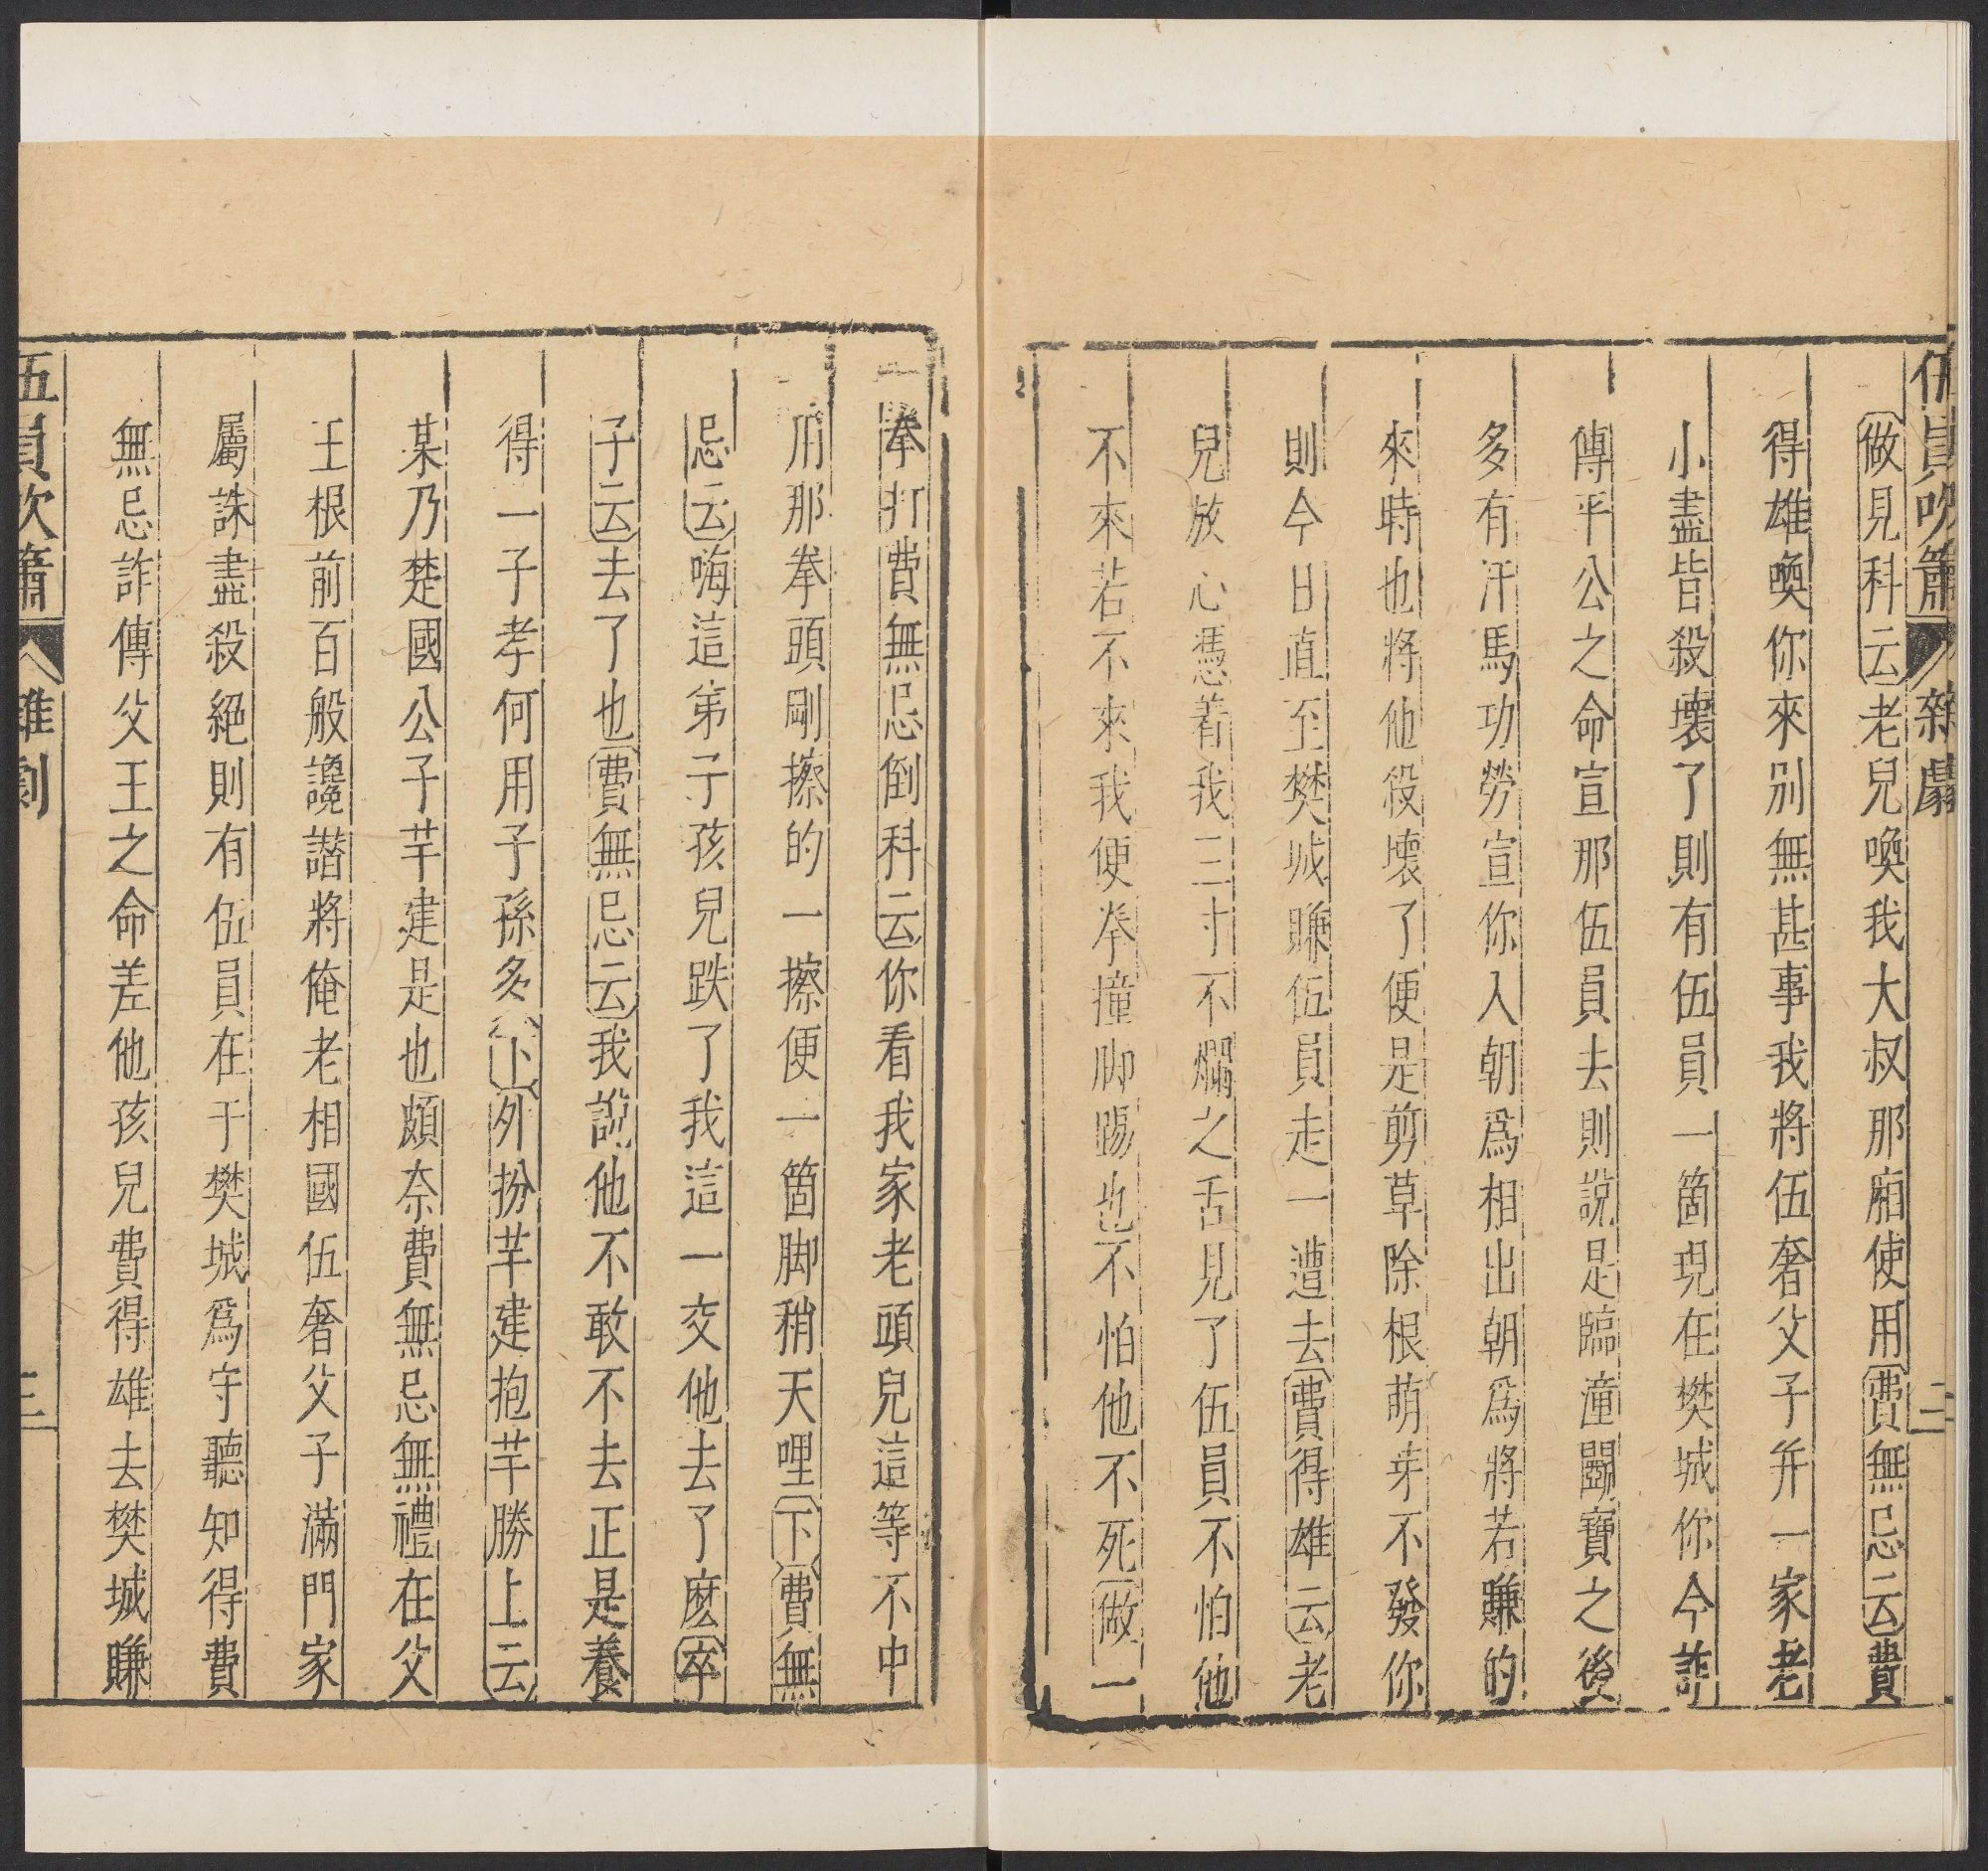 伍員吹簫 雜劇 二
做見科云老兒喚我大叔那廂使用費無忌云費
得雄喚你來別無甚事我將伍奢父子并一家老
小盡皆殺壞了則有伍員一箇現在樊城你今詐
傳平公之命宣那伍員去則說是臨潼鬬寶之後
多有汗馬功勞宣你入朝爲相出朝爲將若賺的
來時也將他役壞了便是剪草除根萌芽不發你
則今日直至樊城賺伍員走一遭去費得雄云老
兒放心憑着我三寸不爛之舌見了伍員不怕他
不來若不來我便拳撞脚踢也不怕他不死做一
拳打費無忌倒科云你看我家老頭兒這等不中
用那拳頭剛擦的一擦便一箇脚稍天哩下費無
忌云嗨這弟子孩兒跌了我這一交他去了麽卒
子云去了也費無忌云我說他不敢不去正是養
得一子孝何用子孫多下外扮芊建抱芊勝上云
某乃楚國公子芊建是也頗奈費無忌無禮在父
王根前百般讒譖將俺老相國伍奢父子滿門家
屬誅盡殺絕則有伍員在于樊城爲守聽知得費
無忌詐傳父王之命差他孩兒費得雄去樊城賺
伍員吹簫 雜劇 三